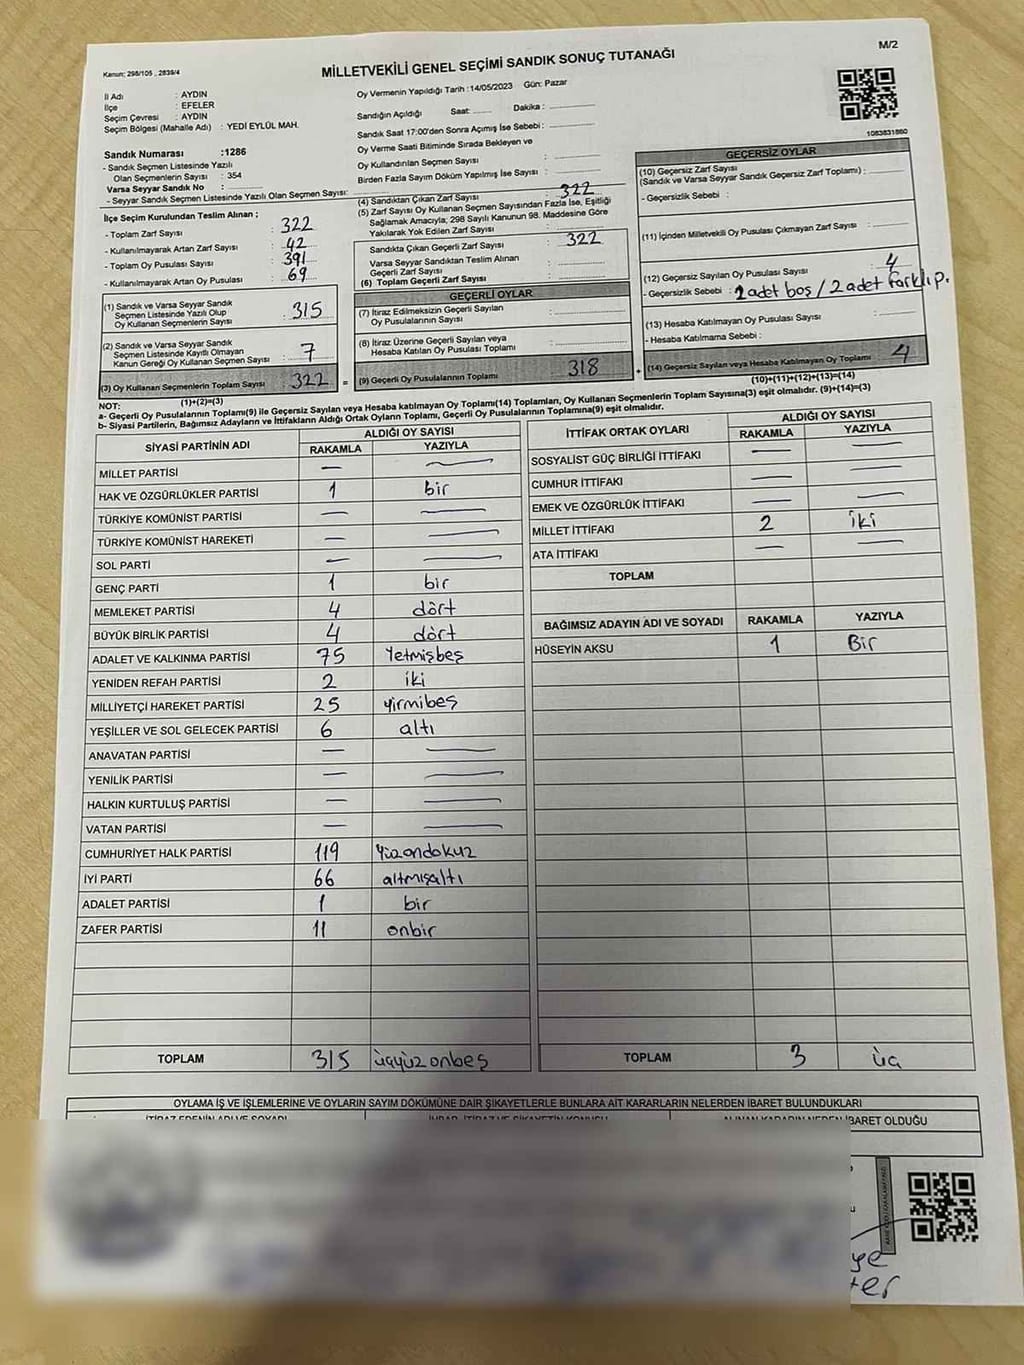 M/2
Kanun; 298/105 , 2839/4
MİLLETVEKİLİ GENEL SEÇİMİ SANDIK SONUÇ TUTANAĞI
İl Adı : AYDIN
İlçe : EFELER
Seçim Çevresi : AYDIN
Seçim Bölgesi (Mahalle Adı) : YEDİ EYLÜL MAH.
Sandık Numarası :1286
- Sandık Seçmen Listesinde Yazılı
Olan Seçmenlerin Sayısı : 354
Varsa Seyyar Sandık No :
- Seyyar Sandık Seçmen Listesinde Yazılı Olan Seçmen Sayısı:
Oy Vermenin Yapıldığı Tarih :14/05/2023 Gün: Pazar
Sandığın Açıldığı Saat: Dakika :
Sandık Saat 17:00'den Sonra Açımış İse Sebebi :
Oy Verme Saati Bitiminde Sırada Bekleyen ve
Oy Kullandırılan Seçmen Sayısı :
Birden Fazla Sayım Döküm Yapılmış İse Sayısı :
1083831860
İlçe Seçim Kurulundan Teslim Alınan ;
- Toplam Zarf Sayısı : 322
- Kullanılmayarak Artan Zarf Sayısı : 42
- Toplam Oy Pusulası Sayısı : 391
- Kullanılmayarak Artan Oy Pusulası : 69
(1) Sandık ve Varsa Seyyar Sandık
Seçmen Listesinde Yazılı Olup
Oy Kullanan Seçmenlerin Sayısı : 315
(2) Sandık ve Varsa Seyyar Sandık
Seçmen Listesinde Kayıtlı Olmayan
Kanun Gereği Oy Kullanan Seçmen Sayısı : 7
(3) Oy Kullanan Seçmenlerin Toplam Sayısı 322 =
(1)+(2)=(3)
(4) Sandıktan Çıkan Zarf Sayısı : 322
(5) Zarf Sayısı Oy Kullanan Seçmen Sayısından Fazla İse, Eşitliği
Sağlamak Amacıyla; 298 Sayılı Kanunun 98. Maddesine Göre
Yakılarak Yok Edilen Zarf Sayısı :
Sandıkta Çıkan Geçerli Zarf Sayısı : 322
Varsa Seyyar Sandıktan Teslim Alınan
Geçerli Zarf Sayısı :
(6) Toplam Geçerli Zarf Sayısı :
GEÇERLİ OYLAR
(7) İtiraz Edilmeksizin Geçerli Sayılan
Oy Pusulalarının Sayısı :
(8) İtiraz Üzerine Geçerli Sayılan veya
Hesaba Katılan Oy Pusulası Toplamı :
(9) Geçerli Oy Pusulalarının Toplamı 318 +
GEÇERSİZ OYLAR
(10) Geçersiz Zarf Sayısı
(Sandık ve Varsa Seyyar Sandık Geçersiz Zarf Toplamı) :
- Geçersizlik Sebebi :
(11) İçinden Milletvekili Oy Pusulası Çıkmayan Zarf Sayısı :
(12) Geçersiz Sayılan Oy Pusulası Sayısı : 4
- Geçersizlik Sebebi : 2 adet boş / 2 adet farklı p.
(13) Hesaba Katılmayan Oy Pusulası Sayısı :
- Hesaba Katılmama Sebebi :
(14) Geçersiz Sayılan veya Hesaba Katılmayan Oy Toplamı 4
(10)+(11)+(12)+(13)=(14)
NOT:
a- Geçerli Oy Pusulalarının Toplamı(9) ile Geçersiz Sayılan veya Hesaba katılmayan Oy Toplamı(14) Toplamları, Oy Kullanan Seçmenlerin Toplam Sayısına(3) eşit olmalıdır. (9)+(14)=(3)
b- Siyasi Partilerin, Bağımsız Adayların ve İttifakların Aldığı Ortak Oyların Toplamı, Geçerli Oy Pusulalarının Toplamına(9) eşit olmalıdır.
SİYASİ PARTİNİN ADI ALDIĞI OY SAYISI
RAKAMLA YAZIYLA
MİLLET PARTİSİ — —
HAK VE ÖZGÜRLÜKLER PARTİSİ 1 bir
TÜRKİYE KOMÜNİST PARTİSİ — —
TÜRKİYE KOMÜNİST HAREKETİ — —
SOL PARTİ — —
GENÇ PARTİ 1 bir
MEMLEKET PARTİSİ 4 dört
BÜYÜK BİRLİK PARTİSİ 4 dört
ADALET VE KALKINMA PARTİSİ 75 Yetmişbeş
YENİDEN REFAH PARTİSİ 2 iki
MİLLİYETÇİ HAREKET PARTİSİ 25 yirmibeş
YEŞİLLER VE SOL GELECEK PARTİSİ 6 altı
ANAVATAN PARTİSİ — —
YENİLİK PARTİSİ — —
HALKIN KURTULUŞ PARTİSİ — —
VATAN PARTİSİ — —
CUMHURİYET HALK PARTİSİ 119 Yüzondokuz
İYİ PARTİ 66 altmışaltı
ADALET PARTİSİ 1 bir
ZAFER PARTİSİ 11 onbir
TOPLAM 315 üçyüzonbeş
İTTİFAK ORTAK OYLARI ALDIĞI OY SAYISI
RAKAMLA YAZIYLA
SOSYALİST GÜÇ BİRLİĞİ İTTİFAKI — —
CUMHUR İTTİFAKI — —
EMEK VE ÖZGÜRLÜK İTTİFAKI — —
MİLLET İTTİFAKI 2 iki
ATA İTTİFAKI — —
TOPLAM
BAĞIMSIZ ADAYIN ADI VE SOYADI RAKAMLA YAZIYLA
HÜSEYİN AKSU 1 Bir
TOPLAM 3 üç
OYLAMA İŞ VE İŞLEMLERİNE VE OYLARIN SAYIM DÖKÜMÜNE DAİR ŞİKAYETLERLE BUNLARA AİT KARARLARIN NELERDEN İBARET BULUNDUKLARI
İTİRAZ EDENİN ADI VE SOYADI İHBAR, İTİRAZ VE ŞİKAYETİN KONUSU ALINAN KARARIN NEDEN İBARET OLDUĞU